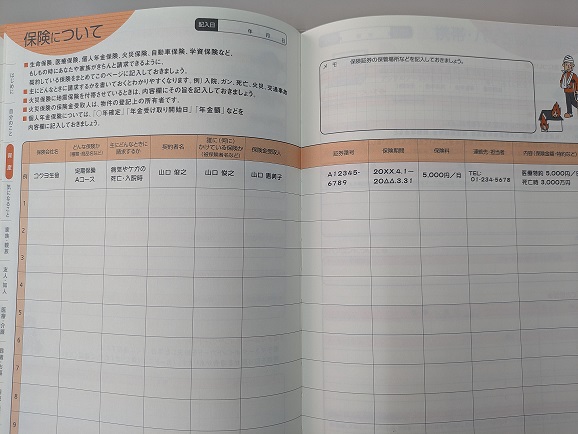 保険について
記入日 年 月 日
■生命保険、医療保険、個人年金保険、火災保険、自動車保険、学資保険など、
もしもの時にあなたや家族がきちんと請求できるように、
契約している保険をまとめてこのページに記入しておきましょう。
■主にどんなときに請求するかを書いておくとわかりやすくなります。例）入院、ガン、死亡、火災、交通事故
■火災保険に地震保険を付帯させているときは、内容欄にその旨を記入しておきましょう。
■火災保険の保険金受取人は、物件の登記上の所有者です。
■個人年金保険については、「○年確定」「年金受け取り開始日」「年金額」などを
内容欄に記入しておきましょう。
メモ 保険証券の保管場所などを記入しておきましょう。
保険会社名 どんな保険か 主にどんなときに請求するか 契約者名 誰に（何に）かけている保険か 保険金受取人 証券番号 保険期間 保険料 連絡先・担当者
例 コクヨ生命 定期保険Aコース 病気やケガの死亡・入院時 山口 俊之 山口 俊之 山口 恵美子 A12345-6789 20XX.4.1〜20△△.3.31 5,000円/月 TEL: 01-234-5678 医療特約 5,000円/ 死亡時 3,000万円
1
2
3
4
5
6
7
8
9
はじめに
自分のこと
資産
気になること
家族・親族
友人・知人
医療・介護